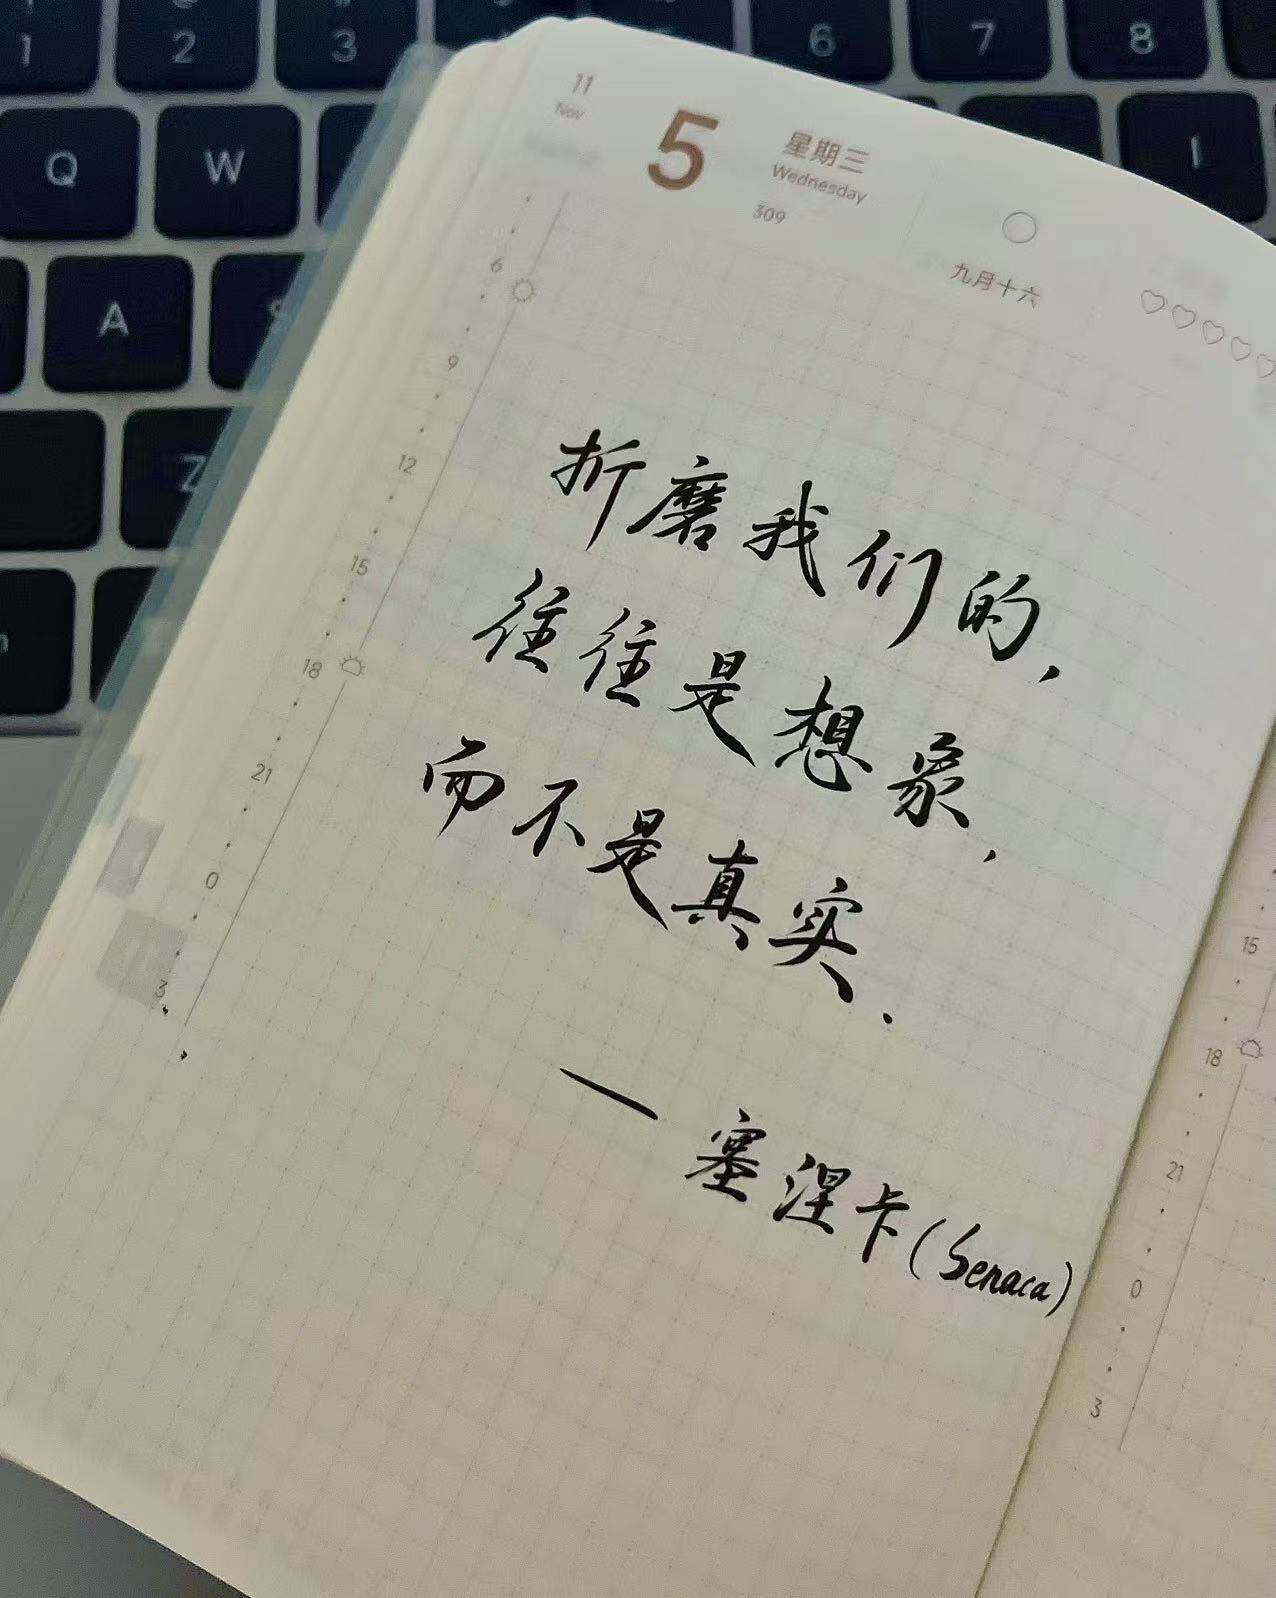 1
2
3
6
7
8
Q
W
I
A
Z
11
Nov
5
星期三
Wednesday
309
九月十六
6
9
12
15
18
21
0
3
折磨我们的,
往往是想象,
而不是真实.
— 塞涅卡(Senaca)
15
18
21
0
3